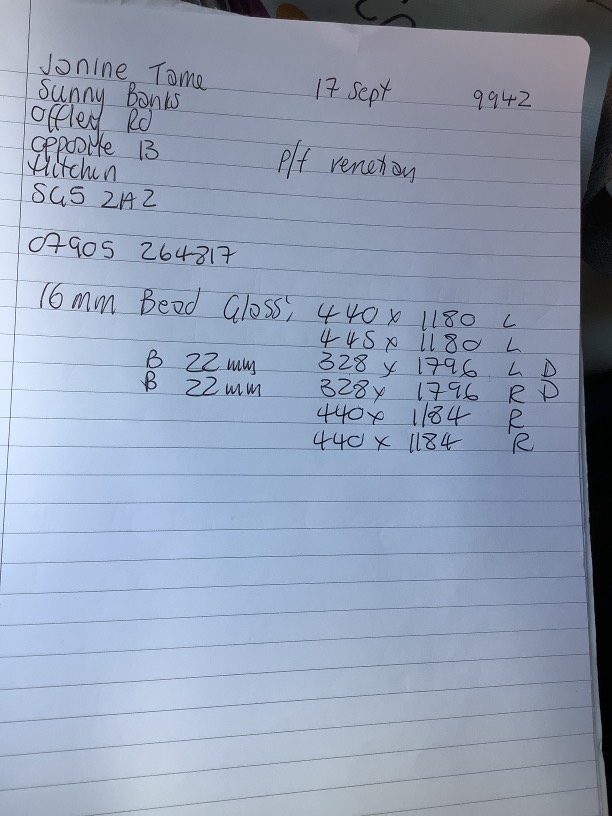 Janine Tame 17 Sept 9942
Sunny Banks
Offley Rd
opposite 13
Hitchin P/f venetian
SG5 2AZ
07905 264817
16mm Bead Gloss; 440 x 1180 L
445 x 1180 L
B 22mm 328 x 1796 L D
B 22mm 328 x 1796 R D
440 x 1184 R
440 x 1184 R